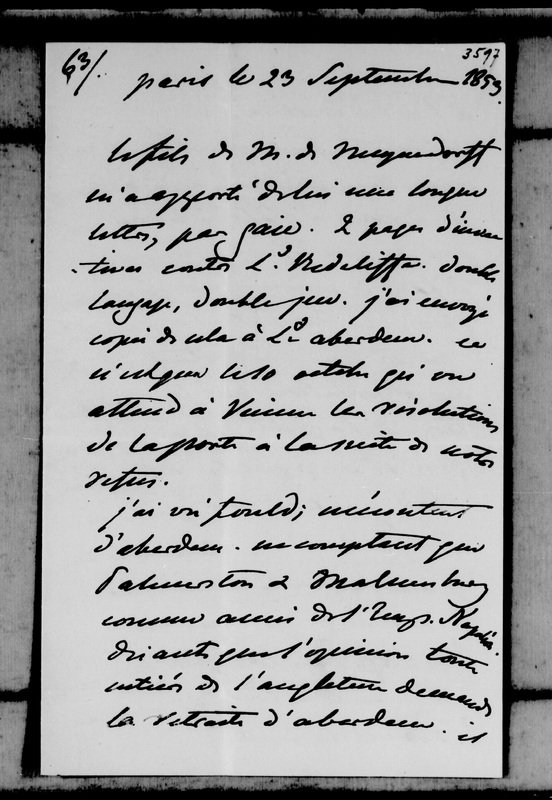 63/
3597
paris le 23 Septembre 1853.
le fils de M. de Meyendorff
m'a apporté de lui une longue
lettre, pas gaie. 2 pages d'invec
tives contre Ld Redcliffe. double
langage, double jeu. j'ai envoyé
copie de cela à Ld aberdeen. ce
n'est que le 10 octobre qu'on
attend à Vienne les résolutions
de la porte à la suite de notre
refus.
j'ai vu fould; mécontent
d'aberdeen. ne comptant que
Palmerston & Malmesbury
comme amis de l'Emp. Napoléon.
disant que l'opinion toute
entière de l'angleterre demande
la retraite d'aberdeen. il